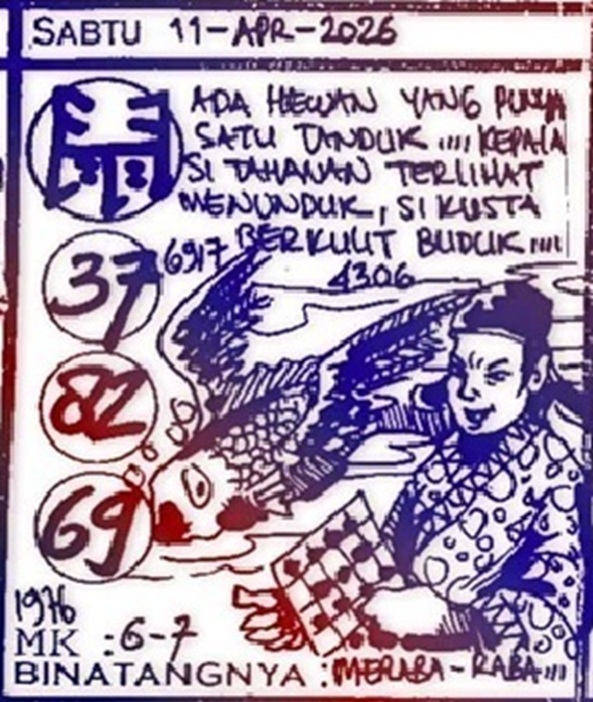 SABTU 11-APR-2026
ADA HEWAN YANG PUNYA
SATU TANDUK .... KEPALA
SI TAHANAN TERLIHAT
MENUNDUK, SI KUSTA
BERKULIT BUDUK ....
37
6917
4306
82
69
1976
MK : 6-7
BINATANGNYA : MERABA-RABA....